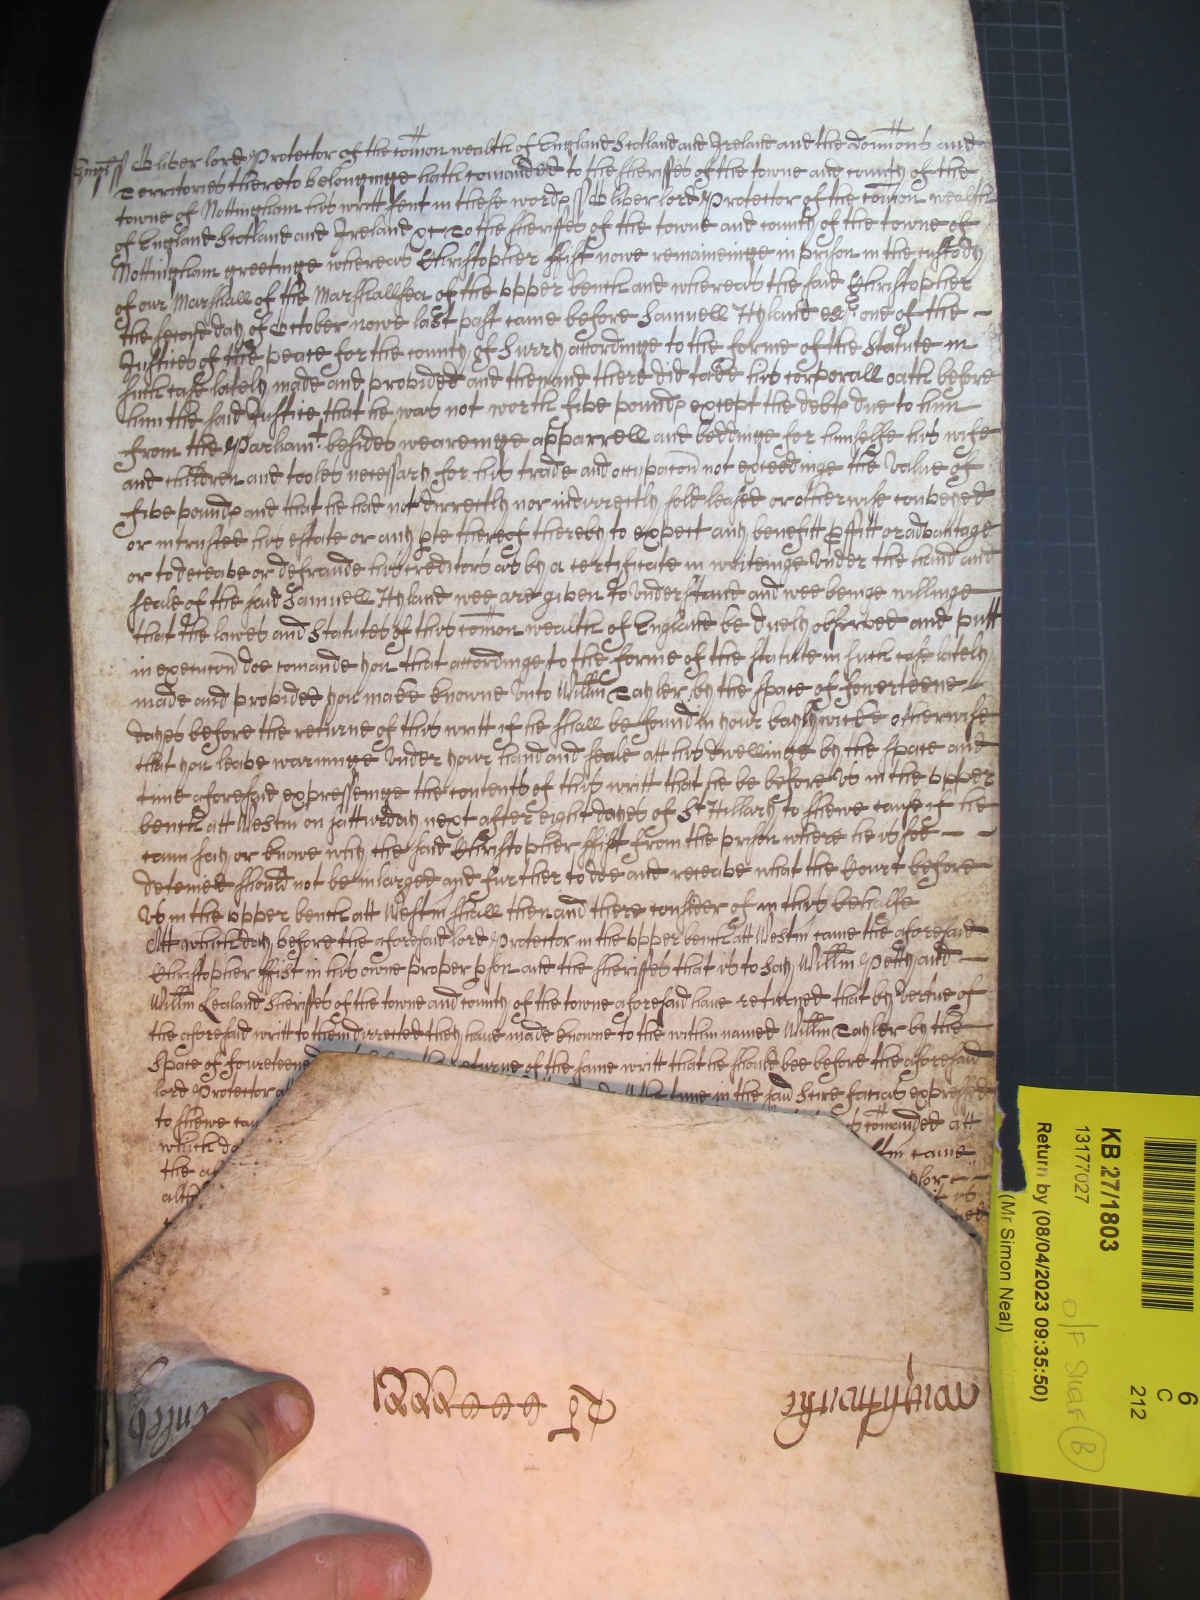 Engl ss Oliver lord Protector of the comon wealth of England Scotland and Ireland and the domions and
Territories thereto belonginge hath comanded to the sheriffes of the towne and county of the
towne of Nottingham his writt sent in these words ss Oliver lord Protector of the comon wealth
of England Scotland and Ireland &c To the sheriffes of the towne and county of the towne of
Nottingham greetinge whereas Christopher ffist nowe remaineinge in prison in the custody
of our Marshall of the Marshallsea of the upper bench and whereas the said Christopher
the second day of October nowe last past came before Samuell Hyland esqr one of the
Justices of the peace for the county of Surry accordinge to the forme of the Statute in
such case lately made and provided and then and there did take his corporall oath before
him the said Justice that he was not worth five pounds except the debts due to him
from the Parliamt besides weareinge apparrell and beddinge for himselfe his wife
and children and tooles necessary for his trade and occupacon not exceedinge the value of
five pounds and that he had not dirrectly nor indirrectly sold leased or otherwise conveyed
or intrusted his estate or any pte thereof thereby to expect any benefitt pffitt or advantage
or to deceave or defraude his creditors as by a certificate in writeinge under the hand and
seale of the said Samuell Hyland wee are given to understand and wee beinge willinge
that the lawes and Statutes of this comon wealth of England be duely observed and putt
in execucon doe comande you that accordinge to the forme of the statute in such case lately
made and provided you make knowne unto Willm Tayler by the space of fowerteene
dayes before the returne of this writt if he shall be found in your baylywicke otherwise
that you leave warninge under your hand and seale att his dwellinge by the space and
time aforesaid expressinge the contents of this writt that he be before us in the upper
bench att Westm on satturday next after eight dayes of St Hillary to shewe cause if he
cann say or knowe why the said Christopher ffist from the prison where he is soe
deteined should not be inlarged and further to doe and receive what the Court before
us in the upper bench att Westm shall then and there consider of in this behalfe
Att which day before the aforesaid lord Protector in the upper bench att Westm came the aforesaid
Christopher ffist in his owne proper pson and the sheriffes that is to say Willm Petty and
Willm Lealand Sheriffes of the towne and county of the towne aforesaid have returned that by vertue of
the aforesaid writt to them dirrected they have made knowne to the within named Willm Tayler by the
Space of fourteene returne of the same writt that he should bee before the aforesaid
lord Protector a the time in the said Scire facias expressed
to shewe cau comanded att
which da came
the af
alth it is
KB 27/1803
13177027
Return by (08/04/2023 09:35:50)
(Mr Simon Neal)
O/F Shelf B
6
C
212